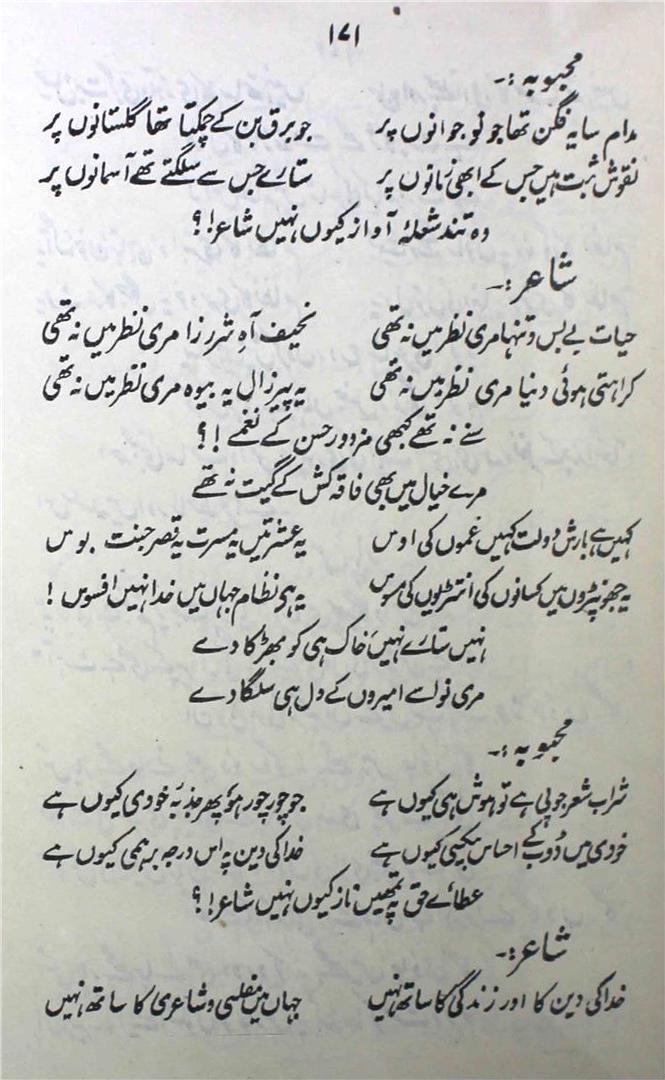 ۱۷۱
محبوبہ :۔
مدام سایہ فگن تھا جو نوجوانوں پر جو برق بن کے چمکتا تھا گلستانوں پر
نقوش ثبت ہیں جس کے ابھی زمانوں پر ستارے جس سے سلگتے تھے آسمانوں پر
وہ تند شعلۂ آواز کیوں نہیں شاعر!؟
شاعر :۔
حیات بے بس و تنہا مری نظر میں نہ تھی نحیف آہِ شرر زا مری نظر میں نہ تھی
کراہتی ہوئی دنیا مری نظر میں نہ تھی یہ پیر زال یہ بیوہ مری نظر میں نہ تھی
سنے نہ تھے کبھی مزدور حسن کے نغمے !؟
مرے خیال میں بھی فاقہ کش کے گیت نہ تھے
کہیں ہے بارش دولت کہیں غموں کی اوس یہ عشرتیں یہ مسرت یہ قصر جنت بوس
یہ جھونپڑوں میں کسانوں کی انتڑیوں کی مسوس یہ ہی نظام جہاں میں خدا نہیں افسوس !
نہیں ستارے نہیں خاک ہی کو بھڑکا دے
مری نوا سے امیروں کے دل ہی سلگا دے
محبوبہ :۔
شراب شعر جو پی ہے تو ہوش ہی کیوں ہے جو چور چور ہو پھر جذبۂ خودی کیوں ہے
خودی میں ڈوب کے احساس بیکسی کیوں ہے خدا کی دین پہ اس درجہ برہمی کیوں ہے
عطائے حق پہ تمھیں ناز کیوں نہیں شاعر!؟
شاعر :۔
خدا کی دین کا اور زندگی کا ساتھ نہیں جہاں میں مفلسی و شاعری کا ساتھ نہیں